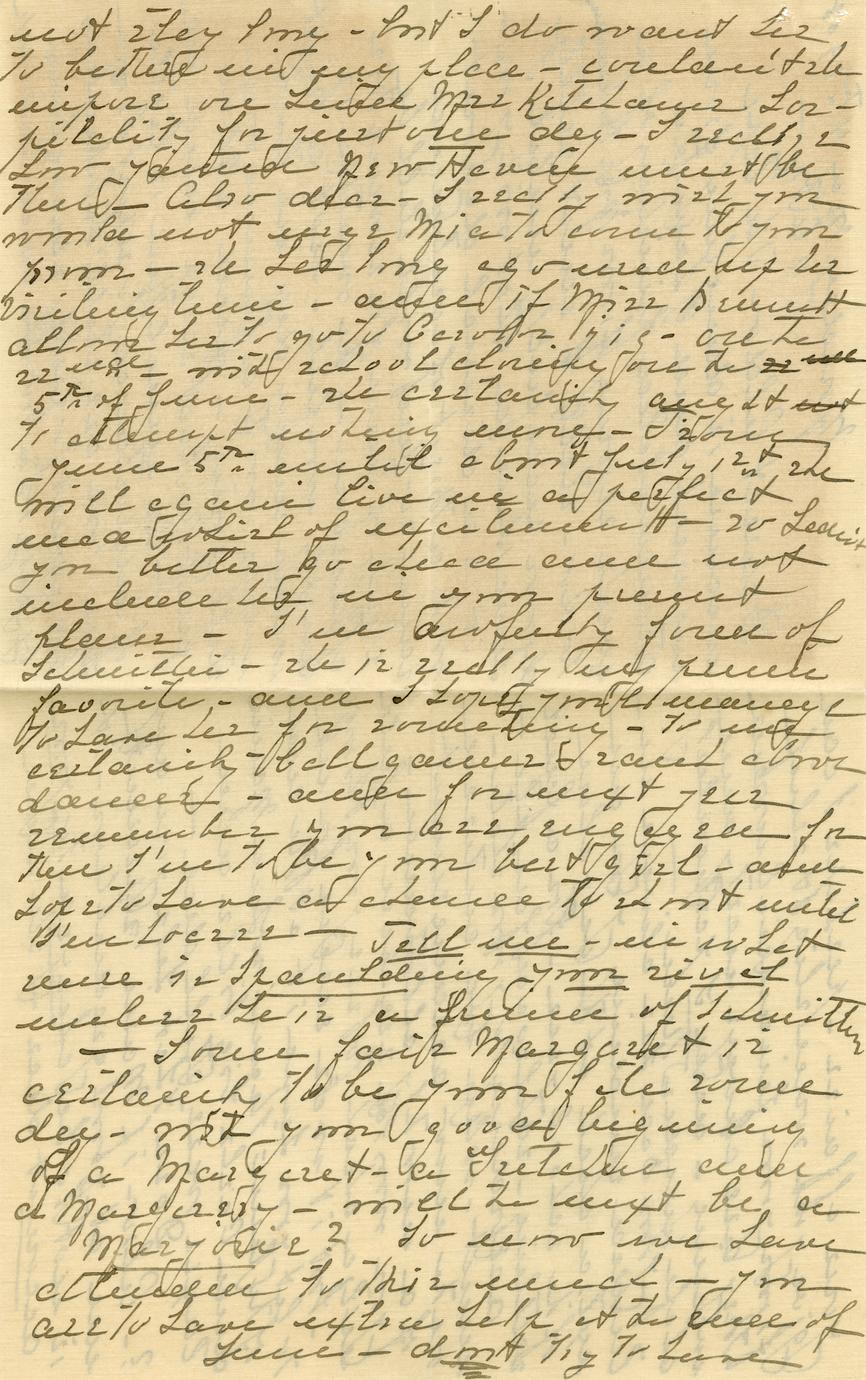 not stay long - but I do want her
to be there in my place - couldn't she
impose on Susee Mrs Kitchener hos-
pitality for just one day - I realize
how jammed New Haven must be
then - Also dear - I really wish you
would not urge Mia to come to your
prom - she has long ago used up her
visiting time - and if Miss Bennett
allows her to go to on the
22nd - with school closing on the 22 nd
5th of June - she certainly aught not
to attempt nothing more - From
June 5th until about July 1st she
will again live in a perfect
mad whirl of excitement - so
you better go ahead and not
include her in your present
plans - I'm awfully fond of
Schnitter - she is really my prime
favorite - and I hope you'll manage
to have her for something - to me
certainly ball games rank above
dances - and for next year
remember you are engaged for
then I'm to be your best girl - and
hope to have a chance to shout until
I'm hoarse - Tell me - in what
sense is Spaulding your rival
unless he is a friend of Schnitter
- Some fair Margaret is
certainly to be your fate some
day - with your good beginning
of a Margaret - a Gretchen and
a Margery - will the next be a
Marjorie? So now we have
attended to this much - you
are to have extra help at the end of
June - don't try to have